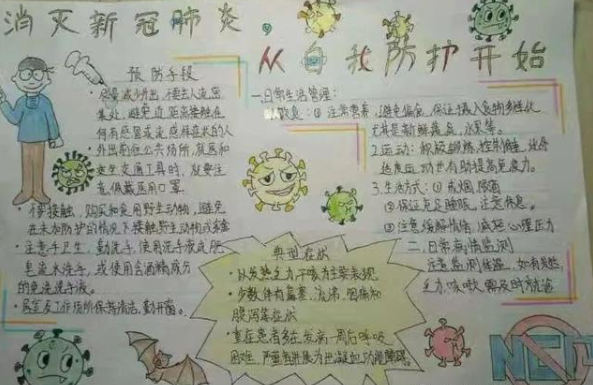 消灭新冠肺炎，
从自我防护开始
预防手段
·尽量减少外出，
避免近距离接触
任何有感冒或流感样症状的人
·外出前往公共场所，就医和
乘坐交通工具时，
佩戴医用口罩。
·不要接触、购买和食用野生动物，避免
在未加防护的情况下接触野生动物或家禽
·注意手卫生，勤洗手，使用洗手液或肥
皂流水洗手，或使用含酒精成分
的免洗洗手液。
·居室及工作场所保持清洁，勤开窗。
典型症状
·以发热乏力干咳为主要表现
·少数伴有鼻塞、流涕、咽痛和
腹泻等症状
·重症患者多在发病一周后呼吸
困难，严重者
一.日常生活管理：
饮食：①注意营养，避免偏食，保证摄入食物多样化
尤其是新鲜蔬菜，水果等。
2.运动：
适度运动也有助提高免疫力。
3.生活方式：①戒烟，限酒
②保证充足睡眠，注意休息。
③注意缓解情绪，减轻心理压力
二.日常病情监测
注意监测体温，如有发热，
乏力，咳嗽，需及时就诊